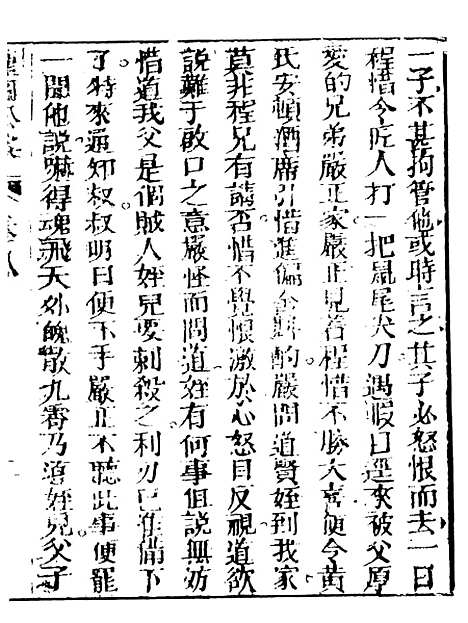 一子不甚拘管他或時言之其子必怒恨而去一日
程惜令匠人打一把鼠尾尖刀遇暇日逕來被父厚
愛的兄弟嚴正家嚴正見着程惜不勝大喜便令黄
氏安頓酒席引惜進偏舍斟酌嚴問道賢姪到我家
莫非程兄有請否惜不覺恨激於心怒目反視道欲
說難于啟口之意嚴怪而問道姪有何事但說無妨
惜道我父是個賊人姪兒要刺殺之利刃已准備下
了特來通知叔叔明日便下手嚴正不聽此事便罷
一聞他說嚇得魂飛天外魄散九霄乃道姪兒父子